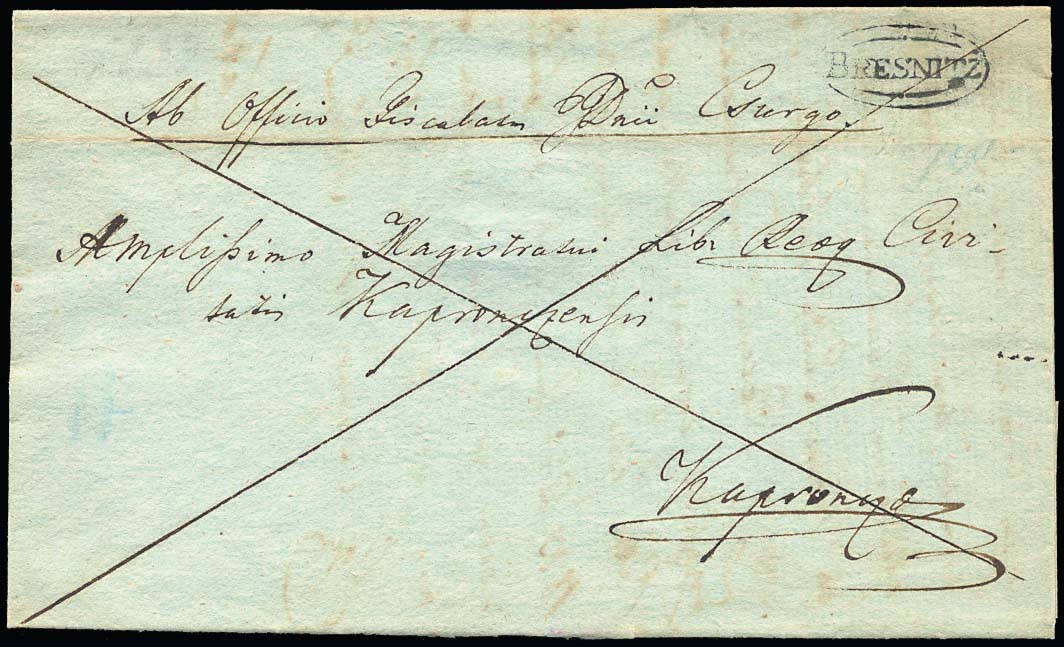 BRESNITZ
Ab Officio Fiscalium Dnii Csurgo.
Amplißimo Magistratui Libr Reæq Civi-
tatis Kapronczensis
Kaproncza